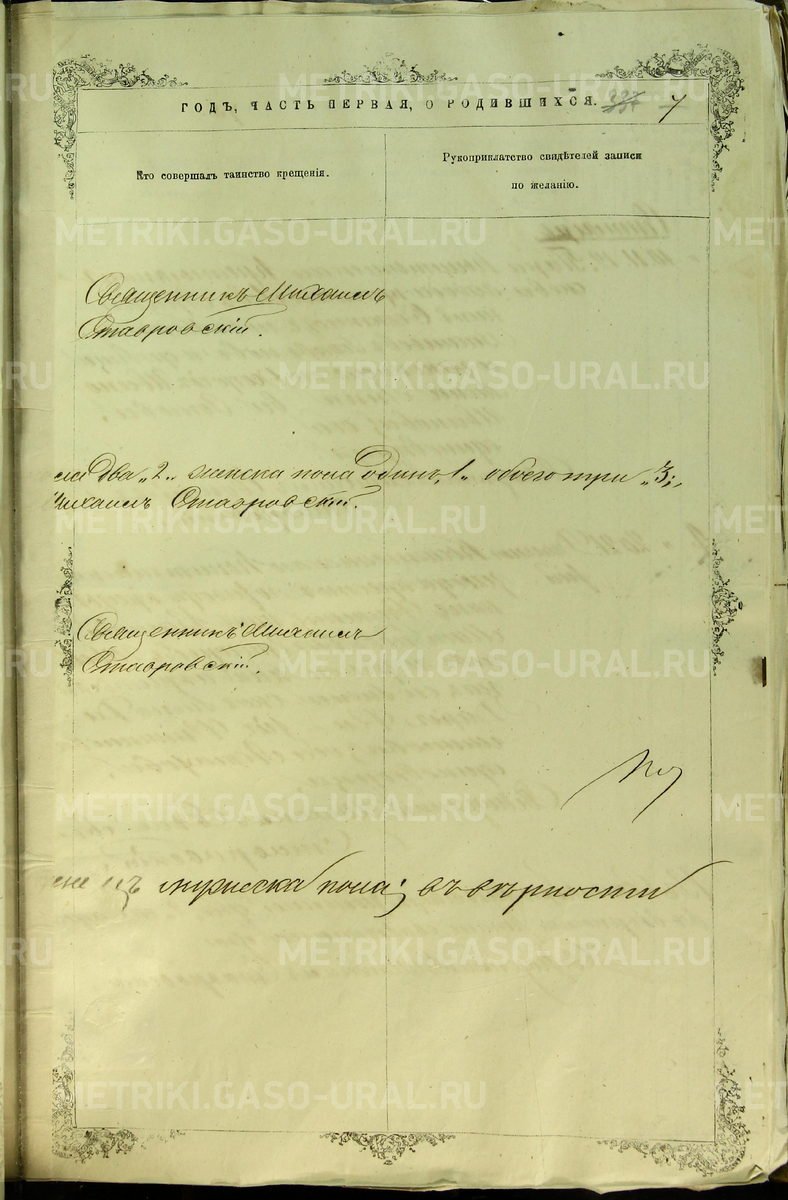 ГОДЪ, ЧАСТЬ ПЕРВАЯ, О РОДИВШИХСЯ. 7
Кто совершалъ таинство крещенія.
Рукоприкладство свидѣтелей записи
по желанію.
Священникъ Михаилъ
Ставровскій.
ла два „2„ женска пола одинъ „1„ обоего три „3„
Михаилъ Ставровскій.
Священникъ Михаилъ
Ставровскій.
мужеска пола; въ вѣрности
METRIKI.GASO-URAL.RU